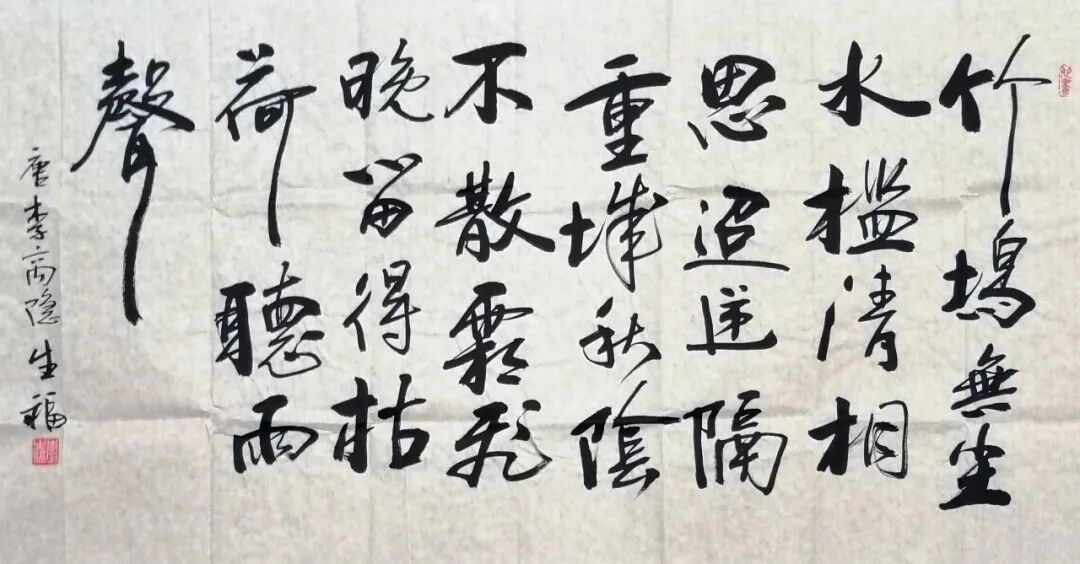 竹塢無尘
水槛清相
思迢递隔
重城秋陰
不散霜飛
晚留得枯
荷聽雨
聲
唐李商隐生福